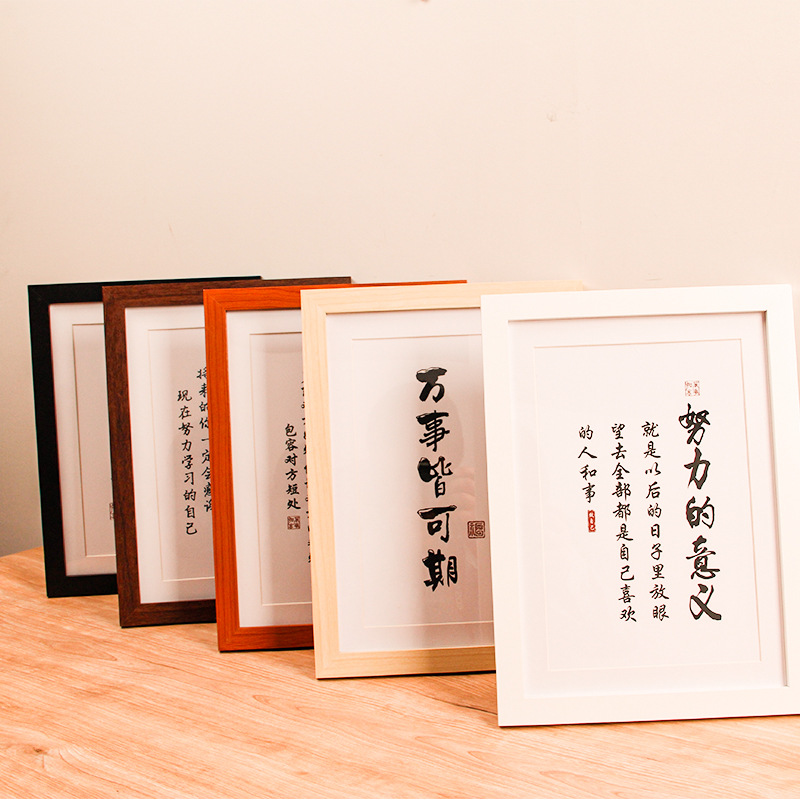 努力的意义
就是以后的日子里放眼
望去全部都是自己喜欢
的人和事
万事皆可期
包容对方短处
将来的你一定会感谢
现在努力学习的自己